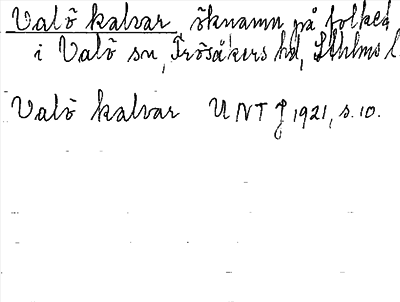 Valö kalvar, öknamn på folket
i Valö sn, Frösåkers hd, Sthlms l.
Valö kalvar UNT J 1921, s. 10.